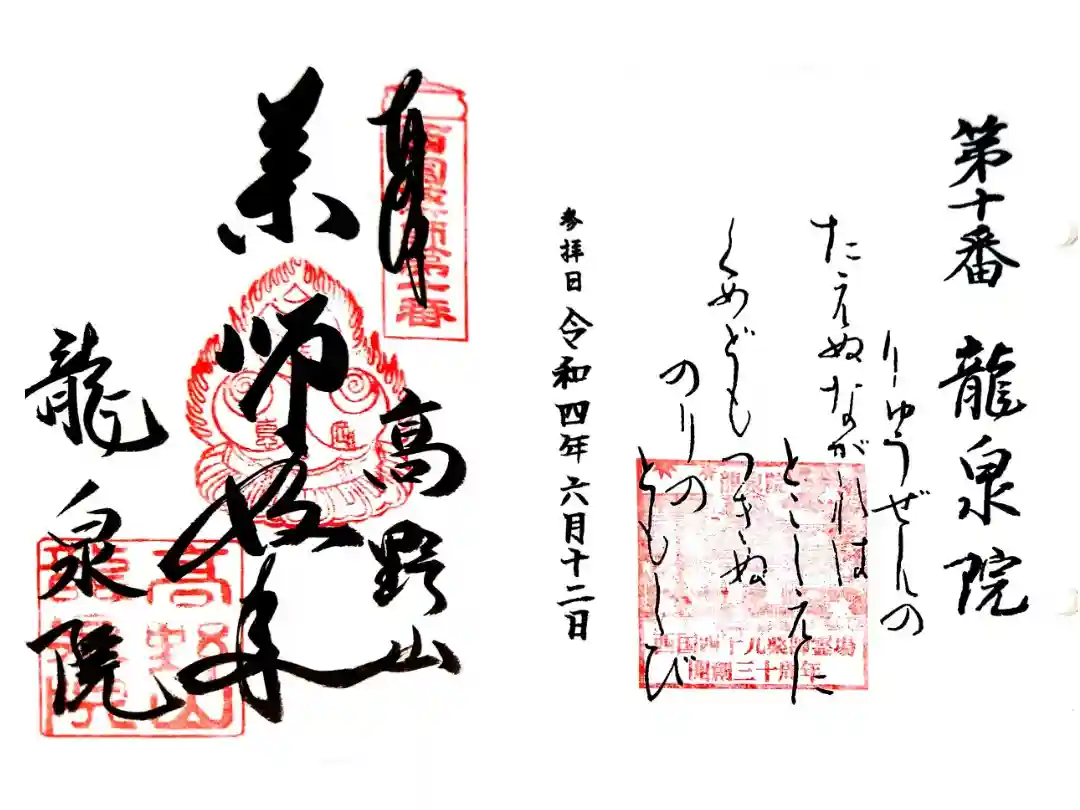 第十番 龍泉院
りゅうぜんの
たえぬながれは
とこしえに
くめどもつきぬ
のりの
ともしび
西国四十九薬師霊場
開創三十周年
参拝日 令和四年六月十二日
奉拝
西国薬師第十番
高野山
薬師如来
龍泉院
高野山
龍泉院